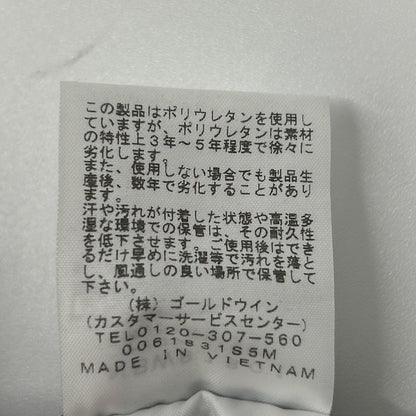 この製品はポリウレタンを使用し
ていますが、ポリウレタンは素材
の特性上3年～5年程度で徐々に
劣化します。
また、使用しない場合でも製品生
産後、数年で劣化することがあり
ます。
汗や汚れが付着した状態や高温多
湿な環境での保管は、その耐久性
を低下させます。ご使用後はでき
るだけ早めに洗濯等で汚れを落と
し、風通しの良い場所で保管して
下さい。
(株) ゴールドウイン
(カスタマーサービスセンター)
TEL0120-307-560
0061831S5M
MADE IN VIETNAM